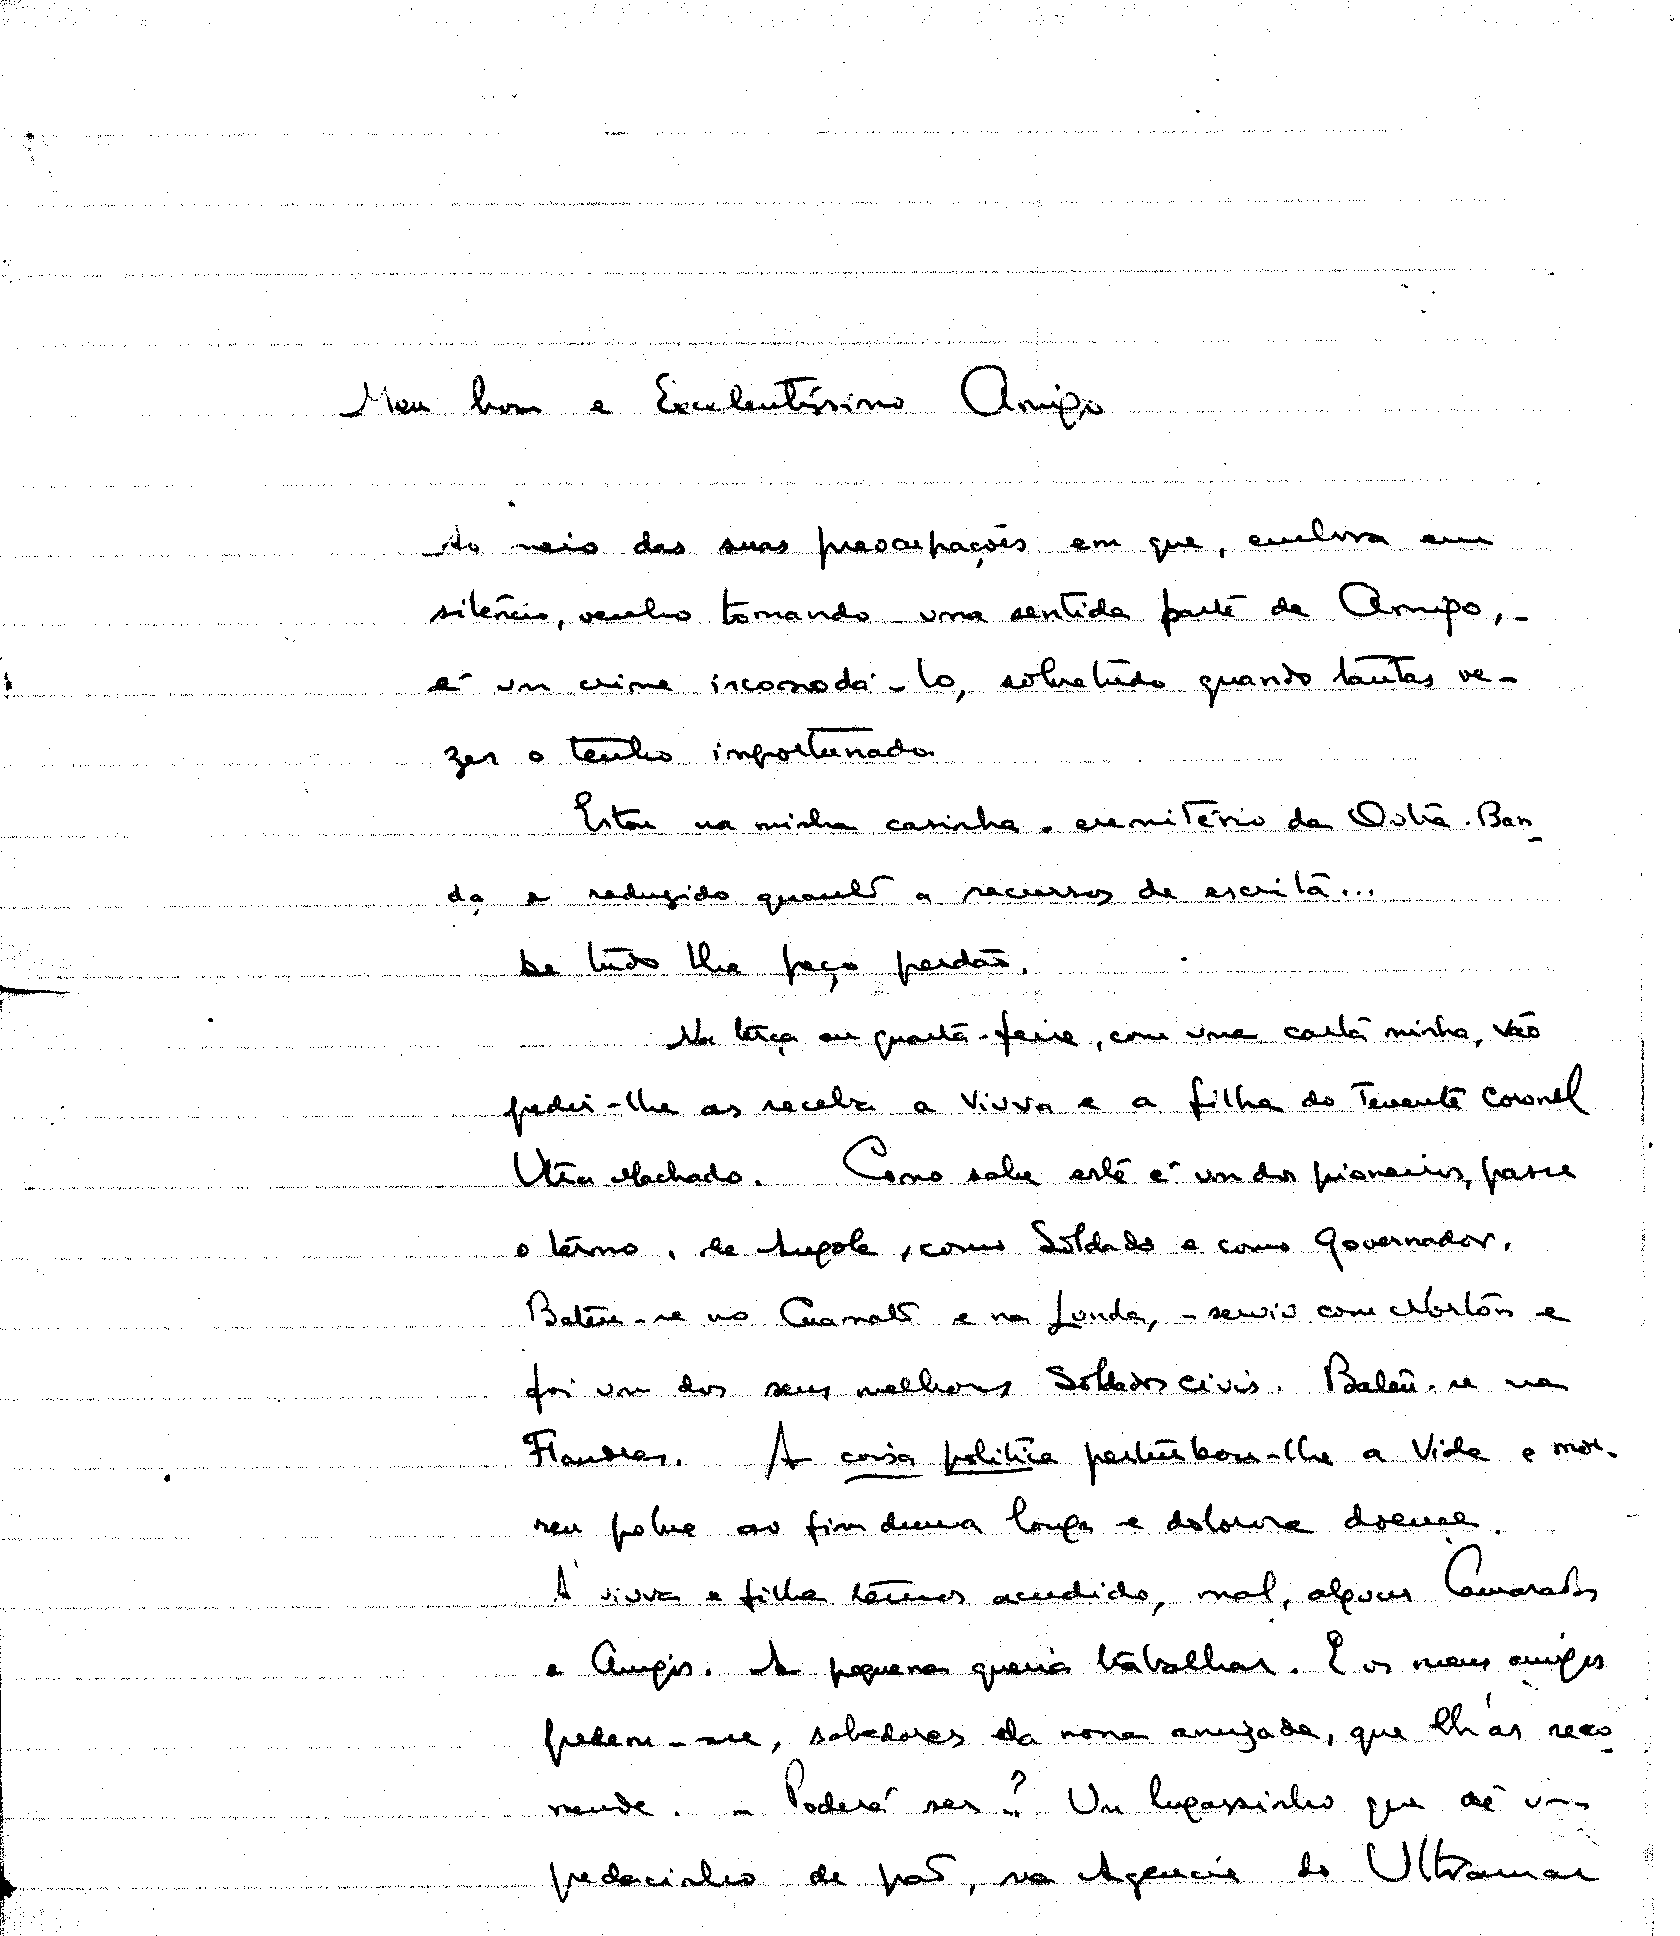 Meu bom e Excelentíssimo Amigo
Ao meio das suas preocupações em que, embora em
silêncio, venho tomando uma sentida parte de Amigo, -
é um crime incomodá-lo, sobretudo quando tantas ve-
zes o tenho importunado.
Estou na minha casinha - eremitério da Outra-Ban-
da, e reduzido quanto a recursos de escrita...
De tudo lhe peço perdão.
Na terça ou quarta-feira, com uma carta minha, vão
pedir-lhe as receba a viuva e a filha do Tenente Coronel
Utra Machado. Como sabe este é um dos pioneiros, passe
o têrmo, de Angola, como Soldado e como Governador.
Bateu-se no Cuamato e na Lunda, - serviu com Norton e
foi um dos seus melhores Soldados civis. Bateu-se na
Flandres. A coisa política perturbou-lhe a Vida e mor-
reu pobre ao fim duma longa e dolorosa doença.
Á viuva e filha têmos acudido, mal, alguns Camaradas
e Amigos. A pequena queria trabalhar. E os meus amigos
pedem-me, sabedores da nossa amizade, que lh'as reco-
mende. - Poderá ser? Um lugarsinho que dê um
pedacinho de pão, na Agencia do Ultramar